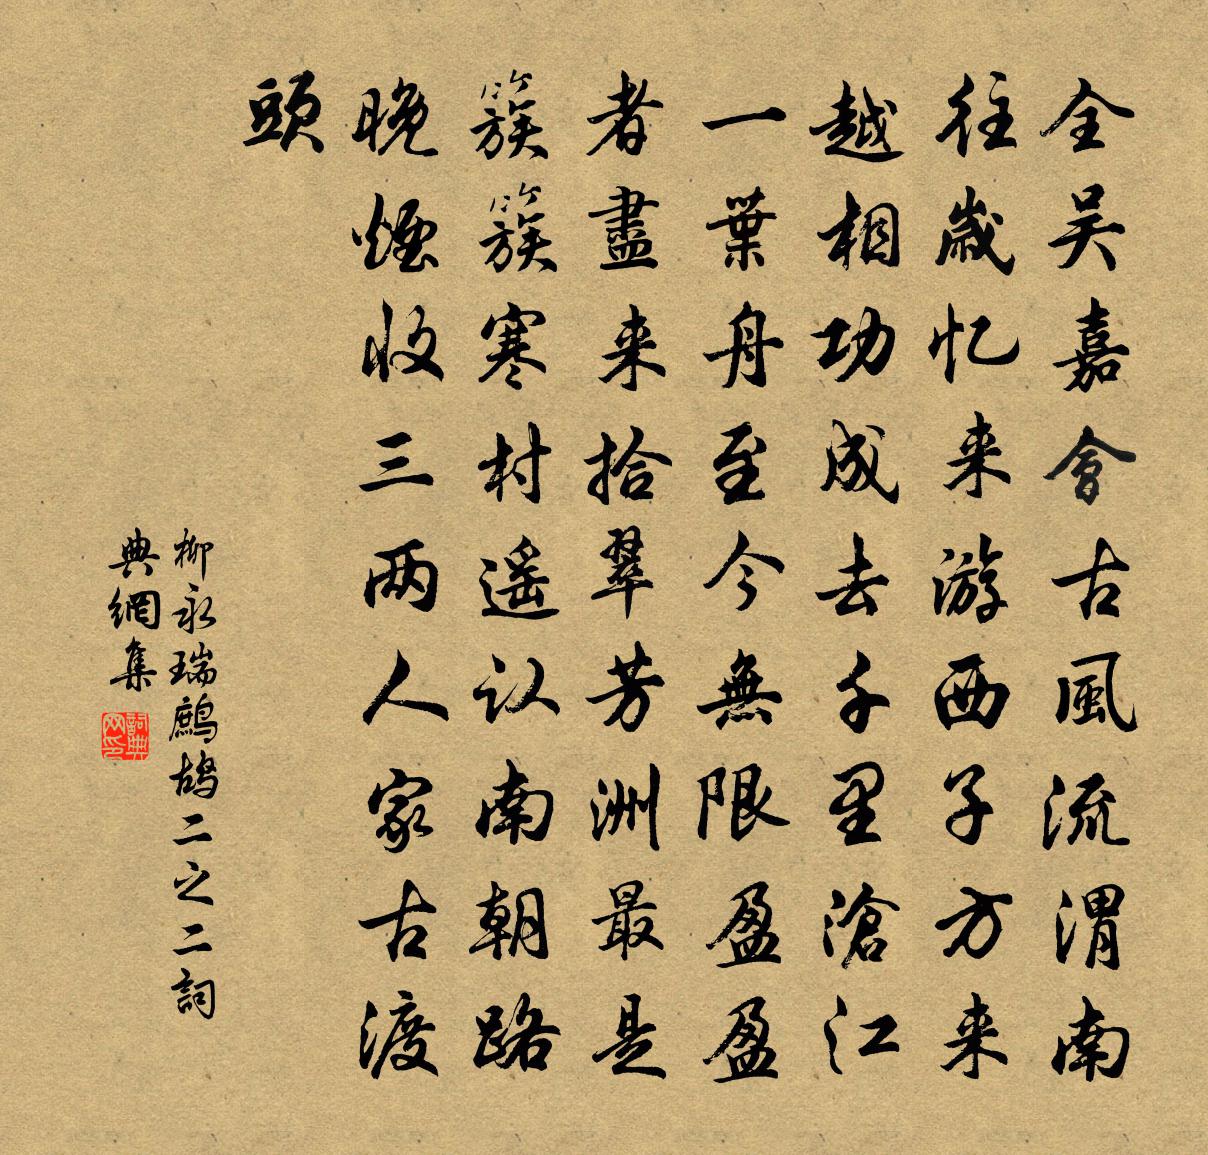 全吴嘉會古風流渭南
往歲忆来游西子方来
越相功成去千里滄江
一葉舟至今無限盈盈
者盡来拾翠芳洲最是
簇簇寒村遥认南朝路
晚煙收三两人家古渡
頭
柳永瑞鷓鴣二之二詞
典網集
詞典网印